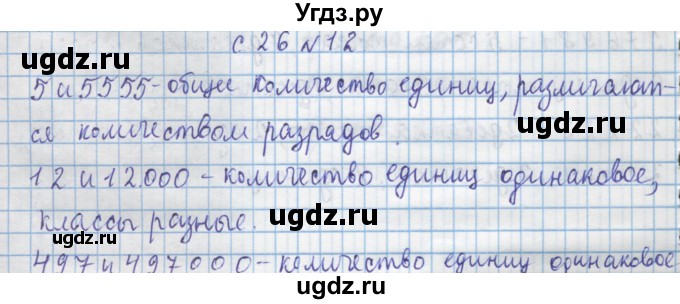 Угдз.ру
с 26 № 12
ugdz.ru ugdz.ru
5 и 5555 - общее количество единиц, различают-
ugdz.ru
ся количеством разрядов.
ugdz.ru
12 и 12.000 - количество единиц одинаковое,
ugdz.ru
классы разные.
ugdz.ru ugdz.ru
497 и 497000 - количество единиц одинаковое